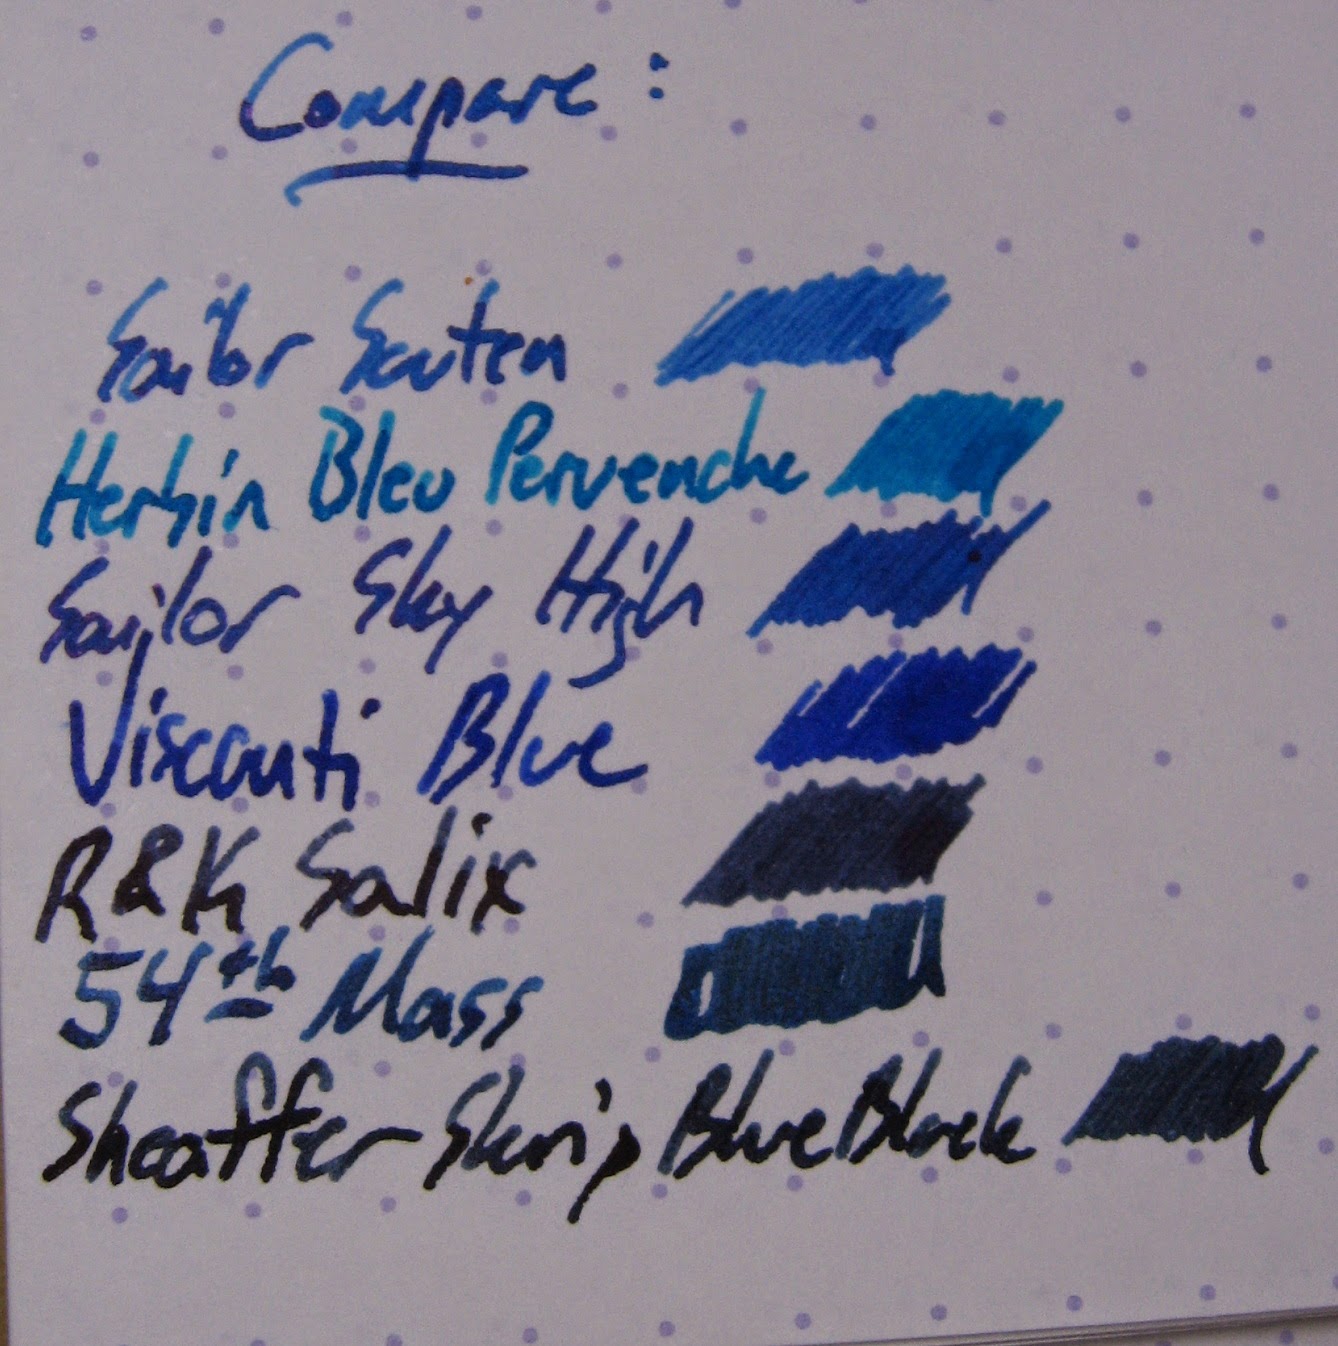 Compare:
Sailor Souten
Herbin Bleu Pervenche
Sailor Sky High
Visconti Blue
R&K Salix
54th Mass
Sheaffer Skrip Blue Black